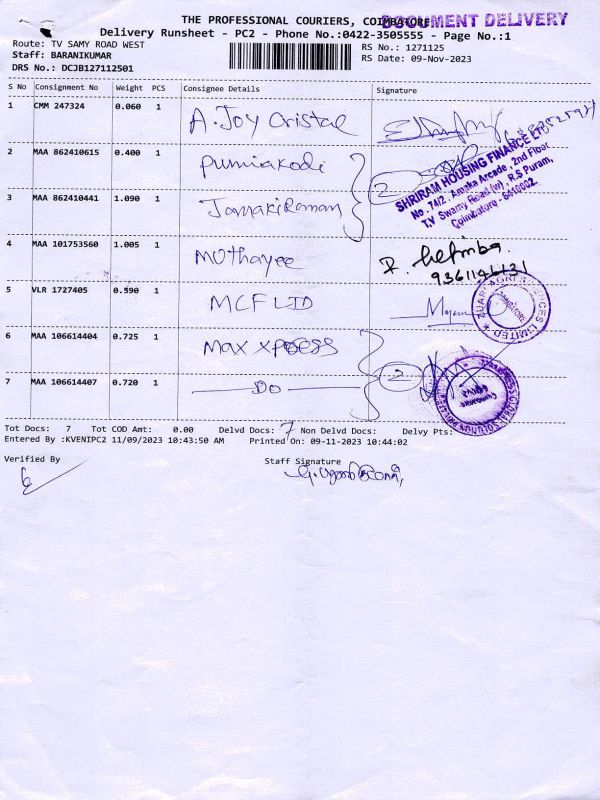 THE PROFESSIONAL COURIERS, COIMBATORE
DOCUMENT DELIVERY
Delivery Runsheet - PC2 - Phone No.:0422-3505555 - Page No.:1
Route: TV SAMY ROAD WEST
RS No.: 1271125
Staff: BARANIKUMAR
RS Date: 09-Nov-2023
DRS No.: DCJB127112501
S No Consignment No Weight PCS Consignee Details Signature
1 CMM 247324 0.060 1 A. Joy Cristal
2 MAA 862410615 0.400 1 2
SHRIRAM HOUSING FINANCE LTD
No. 74/2, Amaka Arcade, 2nd Floor
T.V Swamy Road (w) R.S Puram,
Coimbatore - 641002.
3 MAA 862410441 1.090 1 Janaki Raman
4 MAA 101753560 1.005 1 Muthayee
5 VLR 1727405 0.590 1 MCF LTD
COIMBATORE
LIMITED
6 MAA 106614404 0.725 1 Max Xpress 2
7 MAA 106614407 0.720 1 Do
Tot Docs: 7 Tot COD Amt: 0.00 Delvd Docs: 7 Non Delvd Docs: Delvy Pts:
Entered By :KVENIPC2 11/09/2023 10:43:50 AM Printed On: 09-11-2023 10:44:02
Verified By Staff Signature